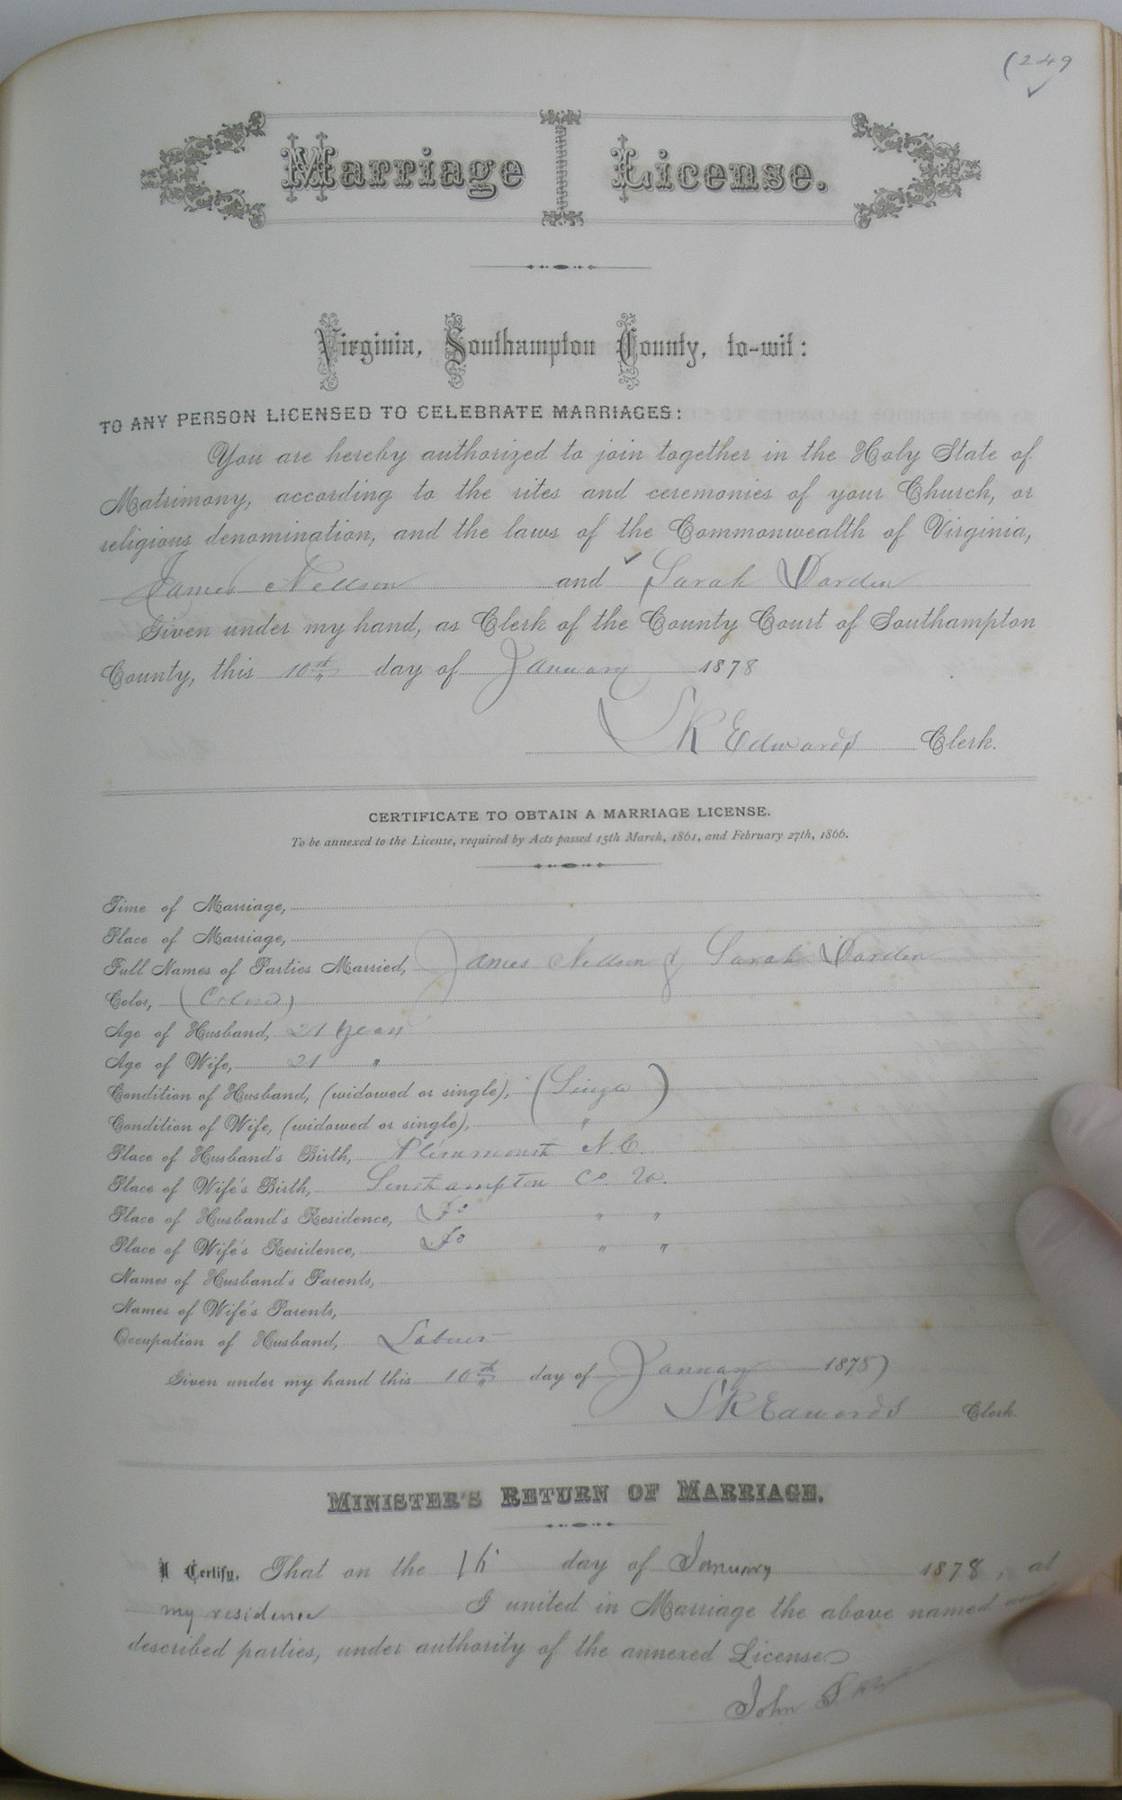 (249
Marriage License.
Virginia, Southampton County, to-wit:
TO ANY PERSON LICENSED TO CELEBRATE MARRIAGES:
You are hereby authorized to join together in the Holy State of
Matrimony, according to the rites and ceremonies of your Church, or
religious denomination, and the laws of the Commonwealth of Virginia,
James Nellson and Sarah Darden
Given under my hand, as Clerk of the County Court of Southampton
County, this 10th day of January 1878
S R Edwards Clerk.
CERTIFICATE TO OBTAIN A MARRIAGE LICENSE.
To be annexed to the License, required by Acts passed 15th March, 1861, and February 27th, 1866.
Time of Marriage,
Place of Marriage,
Full Names of Parties Married, James Nellson & Sarah Darden
Color, (Colored)
Age of Husband, 21 years
Age of Wife, 21 "
Condition of Husband, (widowed or single), (Single)
Condition of Wife, (widowed or single), "
Place of Husband's Birth, N.C.
Place of Wife's Birth, Southampton Co Va.
Place of Husband's Residence, Do " "
Place of Wife's Residence, Do " "
Names of Husband's Parents,
Names of Wife's Parents,
Occupation of Husband, Laborer
Given under my hand this 10th day of January 1878
S R Edwards Clerk.
MINISTER'S RETURN OF MARRIAGE.
I Certify, That on the day of January 1878, at
my residence I united in Marriage the above named and
described parties, under authority of the annexed License
John